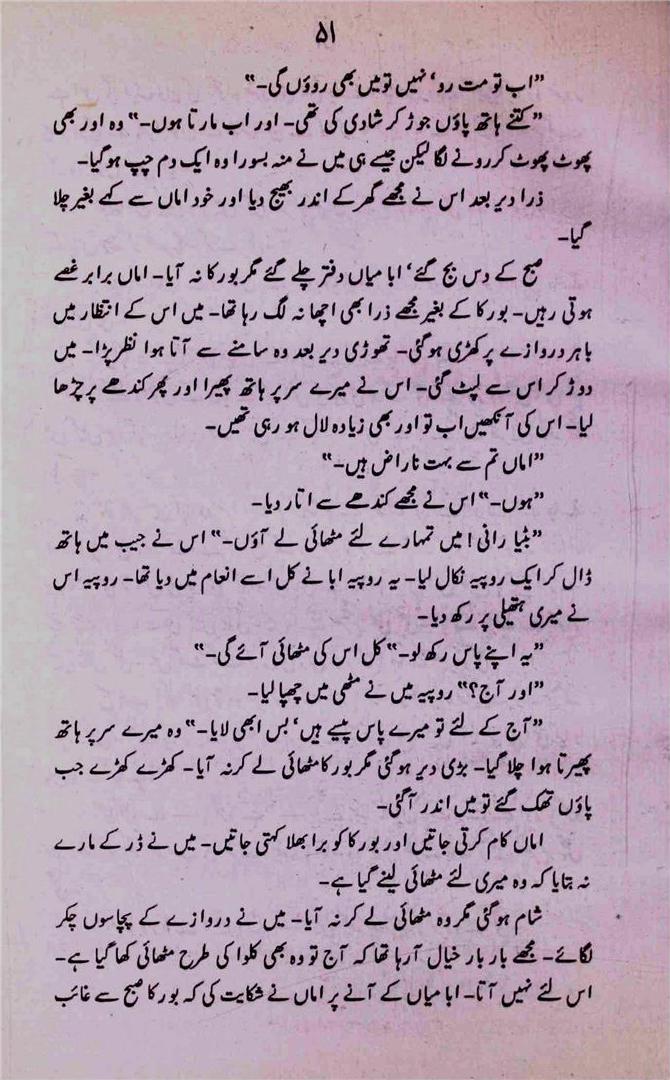 ۵۱
”اب تو مت رو‘ نہیں تو میں بھی روؤں گی۔“
”کتنے ہاتھ پاؤں جوڑ کر شادی کی تھی۔ اور اب مارتا ہوں۔“ وہ اور بھی
پھوٹ پھوٹ کر رونے لگا لیکن جیسے ہی میں نے منہ بسورا وہ ایک دم چپ ہو گیا۔
ذرا دیر بعد اس نے مجھے گھر کے اندر بھیج دیا اور خود اماں سے کہے بغیر چلا
گیا۔
صبح کے دس بج گئے‘ ابا میاں دفتر چلے گئے مگر بور کا نہ آیا۔ اماں برابر غصے
ہوتی رہیں۔ بور کا کے بغیر مجھے ذرا بھی اچھا نہ لگ رہا تھا۔ میں اس کے انتظار میں
باہر دروازے پر کھڑی ہو گئی۔ تھوڑی دیر بعد وہ سامنے سے آتا ہوا نظر پڑا۔ میں
دوڑ کر اس سے لپٹ گئی۔ اس نے میرے سر پر ہاتھ پھیرا اور پھر کندھے پر چڑھا
لیا۔ اس کی آنکھیں اب تو اور بھی زیادہ لال ہو رہی تھیں۔
”اماں تم سے بہت ناراض ہیں۔“
”ہوں۔“ اس نے مجھے کندھے سے اتار دیا۔
”بٹیا رانی! میں تمہارے لئے مٹھائی لے آؤں۔“ اس نے جیب میں ہاتھ
ڈال کر ایک روپیہ نکال لیا۔ یہ روپیہ ابا نے کل اسے انعام میں دیا تھا۔ روپیہ اس
نے میری ہتھیلی پر رکھ دیا۔
”یہ اپنے پاس رکھ لو۔“ کل اس کی مٹھائی آئے گی۔“
”اور آج؟“ روپیہ میں نے مٹھی میں چھپا لیا۔
”آج کے لئے تو میرے پاس پیسے ہیں‘ بس ابھی لایا۔“ وہ میرے سر پر ہاتھ
پھیرتا ہوا چلا گیا۔ بڑی دیر ہو گئی مگر بور کا مٹھائی لے کر نہ آیا۔ کھڑے کھڑے جب
پاؤں تھک گئے تو میں اندر آ گئی۔
اماں کام کرتی جاتیں اور بور کا کو برا بھلا کہتی جاتیں۔ میں نے ڈر کے مارے
نہ بتایا کہ وہ میری لئے مٹھائی لینے گیا ہے۔
شام ہو گئی مگر وہ مٹھائی لے کر نہ آیا۔ میں نے دروازے کے پچاسوں چکر
لگائے۔ مجھے بار بار خیال آ رہا تھا کہ آج تو وہ بھی کلوا کی طرح مٹھائی کھا گیا ہے۔
اس لئے نہیں آتا۔ ابا میاں کے آنے پر اماں نے شکایت کی کہ بور کا صبح سے غائب